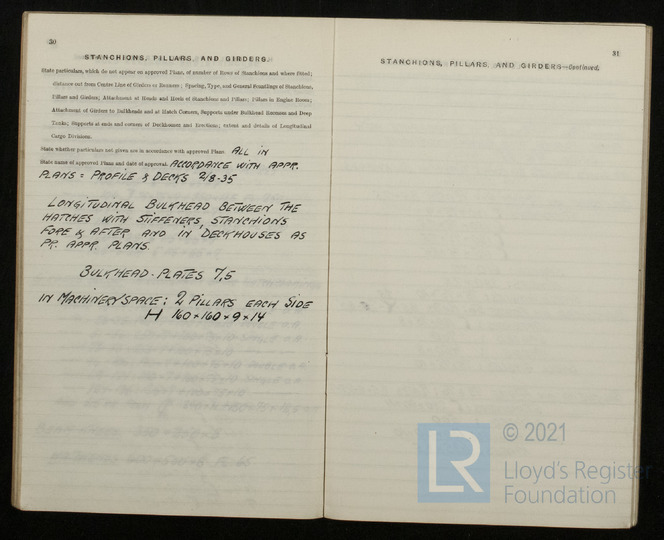 30
STANCHIONS, PILLARS, AND GIRDERS.
State particulars, which do not appear on approved Plans, of number of Rows of Stanchions and where fitted;
distance out from Centre Line of Girders or Runners; Spacing, Type, and General Scantlings of Stanchions,
Pillars and Girders; Attachment of Heads and Heels of Stanchions and Pillars; Pillars in Engine Room;
Attachment of Girders to Bulkheads and at Hatch Corners, Supports under Bulkhead Recesses and Deep
Tanks; Supports at ends and corners of Deckhouses and Erections; extent and details of Longitudinal
Cargo Divisions.
State whether particulars not given are in accordance with approved Plans. ALL IN
State name of approved Plans and date of approval. ACCORDANCE WITH APPR.
PLANS = PROFILE & DECKS 2/8-35
LONGITUDINAL BULKHEAD BETWEEN THE
HATCHES WITH STIFFENERS, STANCHIONS
FORE & AFTER AND IN DECKHOUSES AS
PR. APPR. PLANS.
BULKHEAD-PLATES 7,5
IN MACHINERY SPACE: 2 PILLARS EACH SIDE
H 160×160×9×14
31
STANCHIONS, PILLARS, AND GIRDERS—Continued.
LR
© 2021
Lloyd's Register
Foundation